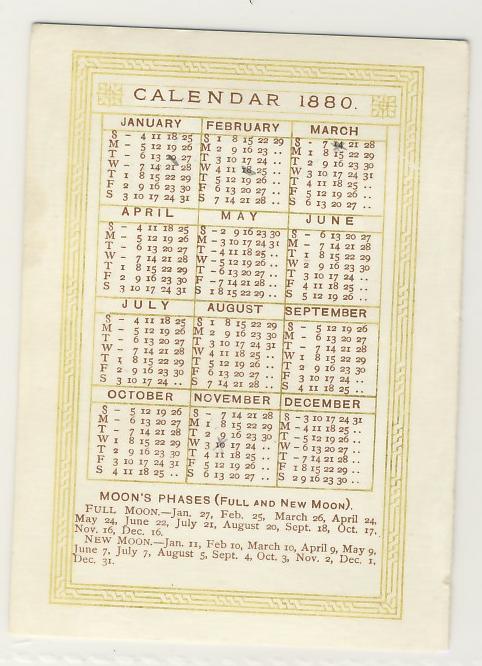 CALENDAR 1880.
JANUARY
S - 4 11 18 25
M - 5 12 19 26
T - 6 13 20 27
W - 7 14 21 28
T 1 8 15 22 29
F 2 9 16 23 30
S 3 10 17 24 31
FEBRUARY
S 1 8 15 22 29
M 2 9 16 23 ..
T 3 10 17 24 ..
W 4 11 18 25 ..
T 5 12 19 26 ..
F 6 13 20 27 ..
S 7 14 21 28 ..
MARCH
S - 7 14 21 28
M 1 8 15 22 29
T 2 9 16 23 30
W 3 10 17 24 31
T 4 11 18 25 ..
F 5 12 19 26 ..
S 6 13 20 27 ..
APRIL
S - 4 11 18 25
M - 5 12 19 26
T - 6 13 20 27
W - 7 14 21 28
T 1 8 15 22 29
F 2 9 16 23 30
S 3 10 17 24 31
MAY
S - 2 9 16 23 30
M - 3 10 17 24 31
T - 4 11 18 25 ..
W - 5 12 19 26 ..
T - 6 13 20 27 ..
F - 7 14 21 28 ..
S 1 8 15 22 29 ..
JUNE
S - 6 13 20 27
M - 7 14 21 28
T 1 8 15 22 29
W 2 9 16 23 30
T 3 10 17 24 ..
F 4 11 18 25 ..
S 5 12 19 26 ..
JULY
S - 4 11 18 25
M - 5 12 19 26
T - 6 13 20 27
W - 7 14 21 28
T 1 8 15 22 29
F 2 9 16 23 30
S 3 10 17 24 ..
AUGUST
S 1 8 15 22 29
M 2 9 16 23 30
T 3 10 17 24 31
W 4 11 18 25 ..
T 5 12 19 26 ..
F 6 13 20 27 ..
S 7 14 21 28 ..
SEPTEMBER
S - 5 12 19 26
M - 6 13 20 27
T - 7 14 21 28
W 1 8 15 22 29
T 2 9 16 23 30
F 3 10 17 24 ..
S 4 11 18 25 ..
OCTOBER
S - 5 12 19 26
M - 6 13 20 27
T - 7 14 21 28
W 1 8 15 22 29
T 2 9 16 23 30
F 3 10 17 24 31
S 4 11 18 25 ..
NOVEMBER
S - 7 14 21 28
M 1 8 15 22 29
T 2 9 16 23 30
W 3 10 17 24 ..
T 4 11 18 25 ..
F 5 12 19 26 ..
S 6 13 20 27 ..
DECEMBER
S - 3 10 17 24 31
M - 4 11 18 25 ..
T - 5 12 19 26 ..
W - 6 13 20 27 ..
T - 7 14 21 28 ..
F 1 8 15 22 29 ..
S 2 9 16 23 30 ..
MOON'S PHASES (FULL AND NEW MOON).
FULL MOON.—Jan. 27, Feb. 25, March 26, April 24,
May 24, June 22, July 21, August 20, Sept. 18, Oct. 17,
Nov. 16, Dec. 16.
NEW MOON.—Jan. 11, Feb 10, March 10, April 9, May 9,
June 7, July 7, August 5, Sept. 4, Oct. 3, Nov. 2, Dec. 1,
Dec. 31.